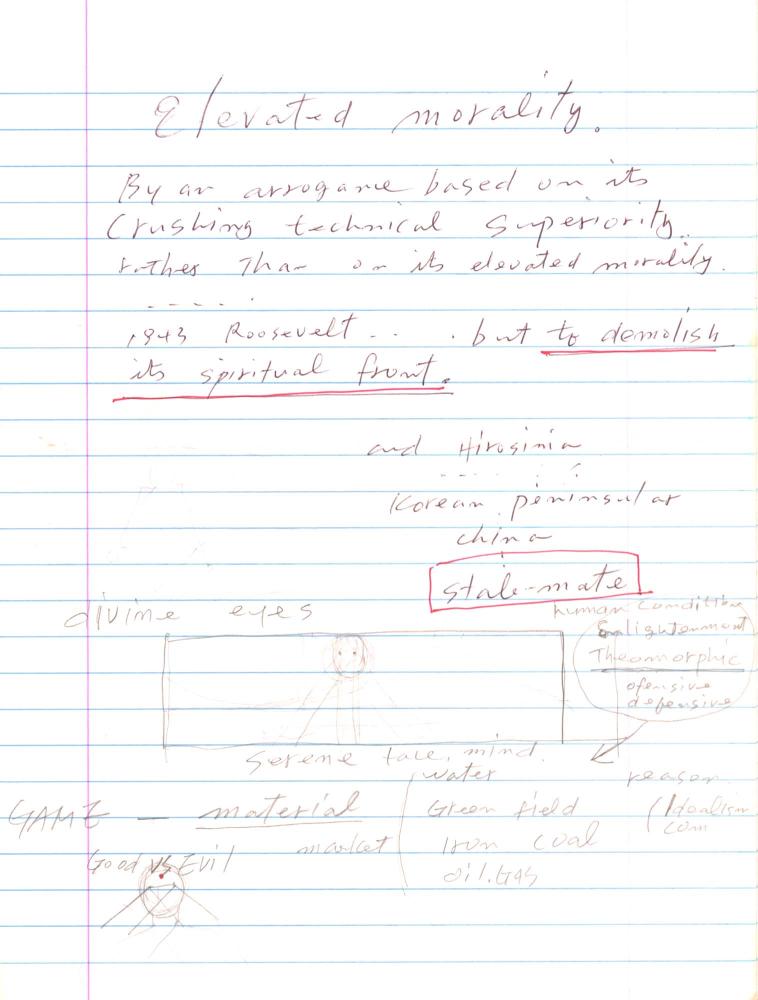 Elevated morality.
By an arrogance based on its
Crushing technical superiority.
rather Than on its elevated morality.
- - - - .
1943 Roosevelt .. . . but to demolish
its spiritual front.
and Hirosinia
Korean peninsular
china
stale-mate
divine eyes
human condition
Enlightenment
Theomorphic
ofensive
defensive
serene face, mind.
water
reason
GAME — material
Green field
(Idealism
com
market
Iron coal
Good VS Evil
oil.Gas